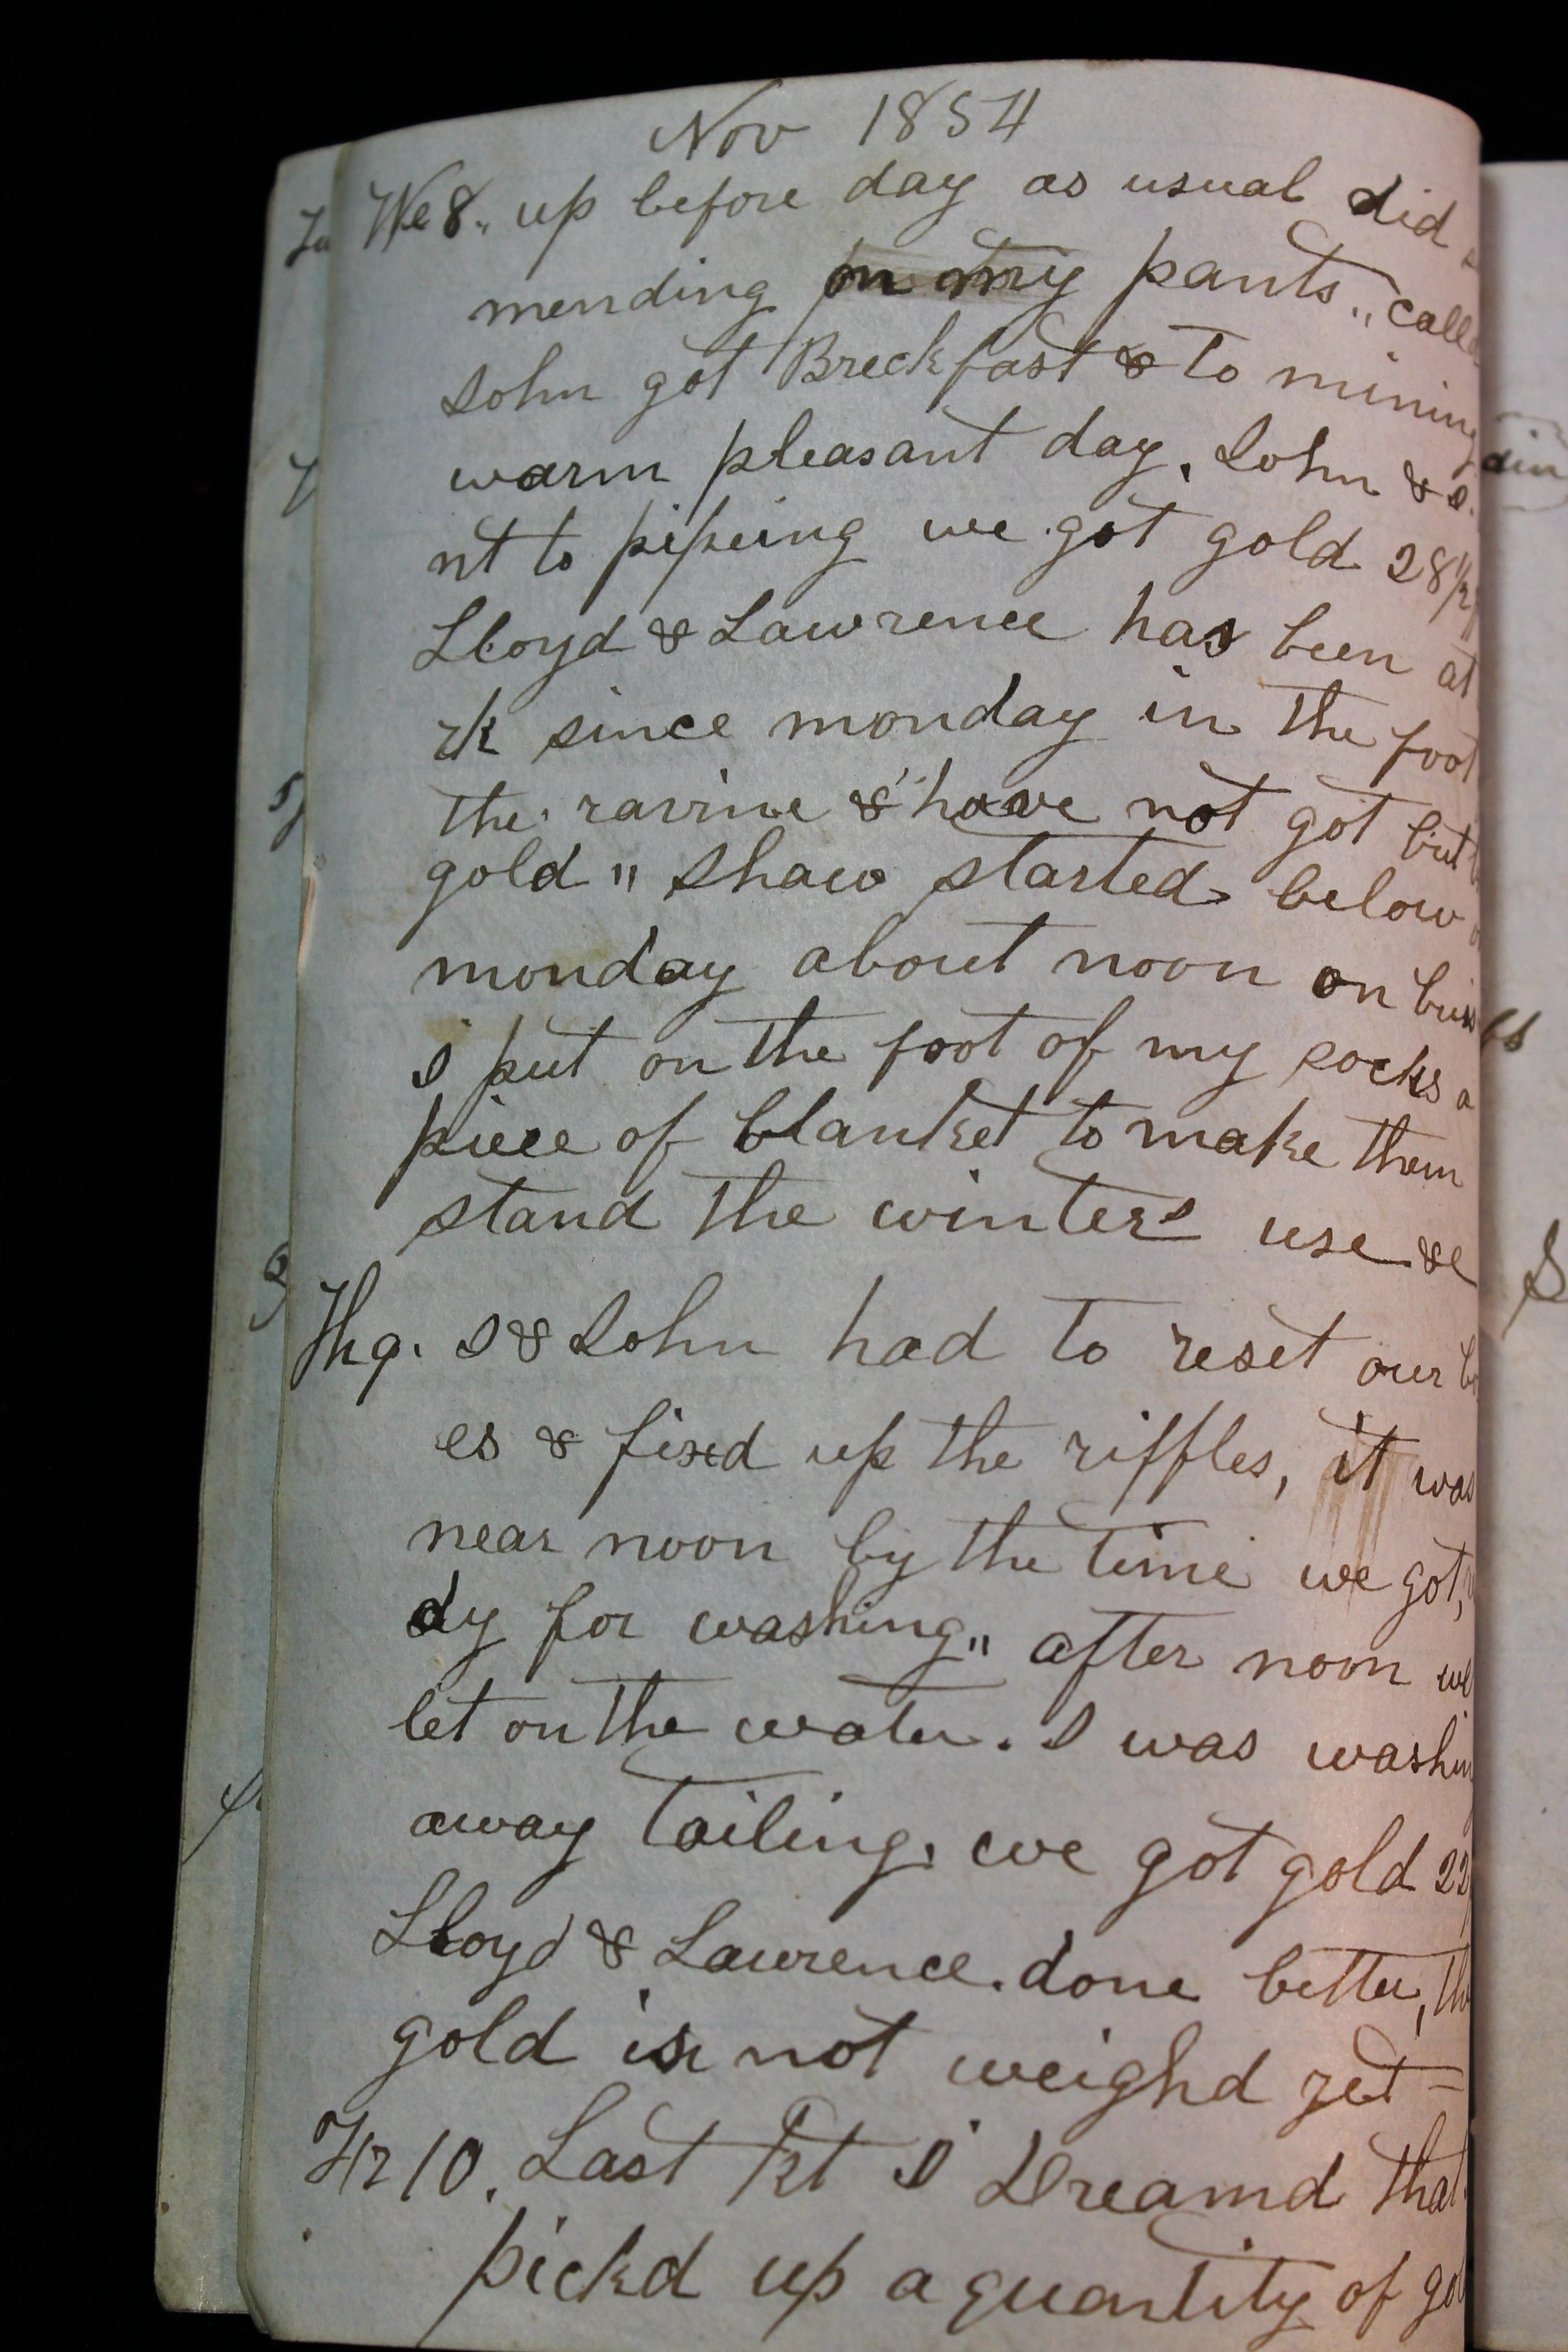 Nov 1854
We 8„ up before day as usual did
mending on my pants„ call
John got Breckfast & to mining
warm pleasant day. John & I.
nt to pipeing we got gold 28 1/2
Lloyd & Lawrence has been at
rk since monday in the foot
the ravine & have not got but
gold „ Shaw started below
monday about noon on buis
I put on the foot of my socks a
piece of blanket to make them
stand the winters use &c
Th 9. I & John had to reset our bo
es & fixed up the riffles, it was
near noon by the time we got,
dy for washing„ after noon we
let on the water. I was washing
away tailing. we got gold 22
Lloyd & Lawrence. done better, the
gold is not weighd yet –
Fr 10. Last I Dreamd that
pickd up a quantity of gol